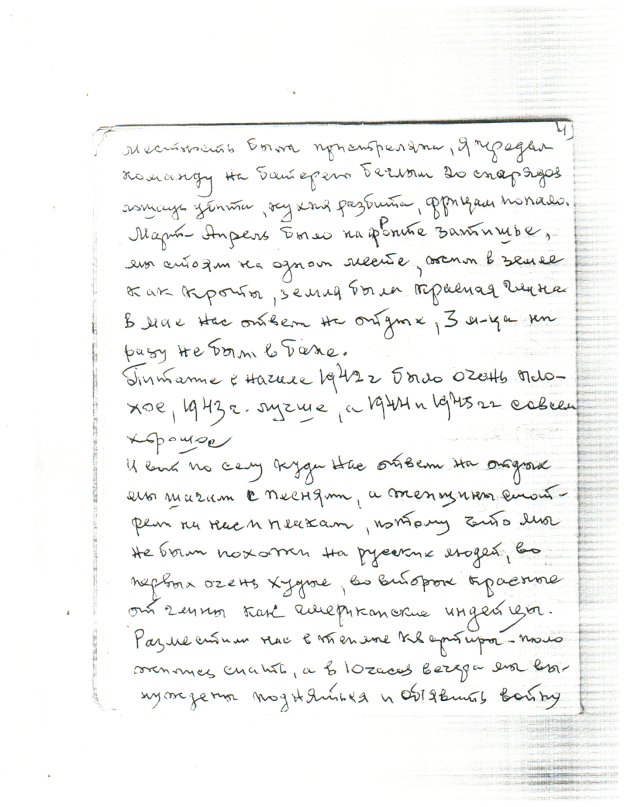 4)
местность была пристреляна, я передал
команду на батерею беглым 20 снарядов
лошадь убита, кухня разбита, фрицам попало.
Март-Апрель было на фронте затишье,
мы стояли на одном месте, жили в земле
как кроты, земля была красная глина
В мае нас отвели на отдых, 3 м-ца ни
разу не были в бане.
Питание с начала 1942 г было очень пло-
хое, 1943 г. лучше, а 1944 и 1945 гг совсем
хорошое
И вот по селу куда нас отвели на отдых
мы шагали с песнями, а женщины смот-
рели на нас и плакали, потому што мы
не были похожи на русских людей, во
первых очень худые, во вторых красные
от глины как американские индейцы.
Разместили нас в теплые квартиры - поло
жились спать, а в 10 часов вечера мы вы-
нуждены подняться и обявить войну